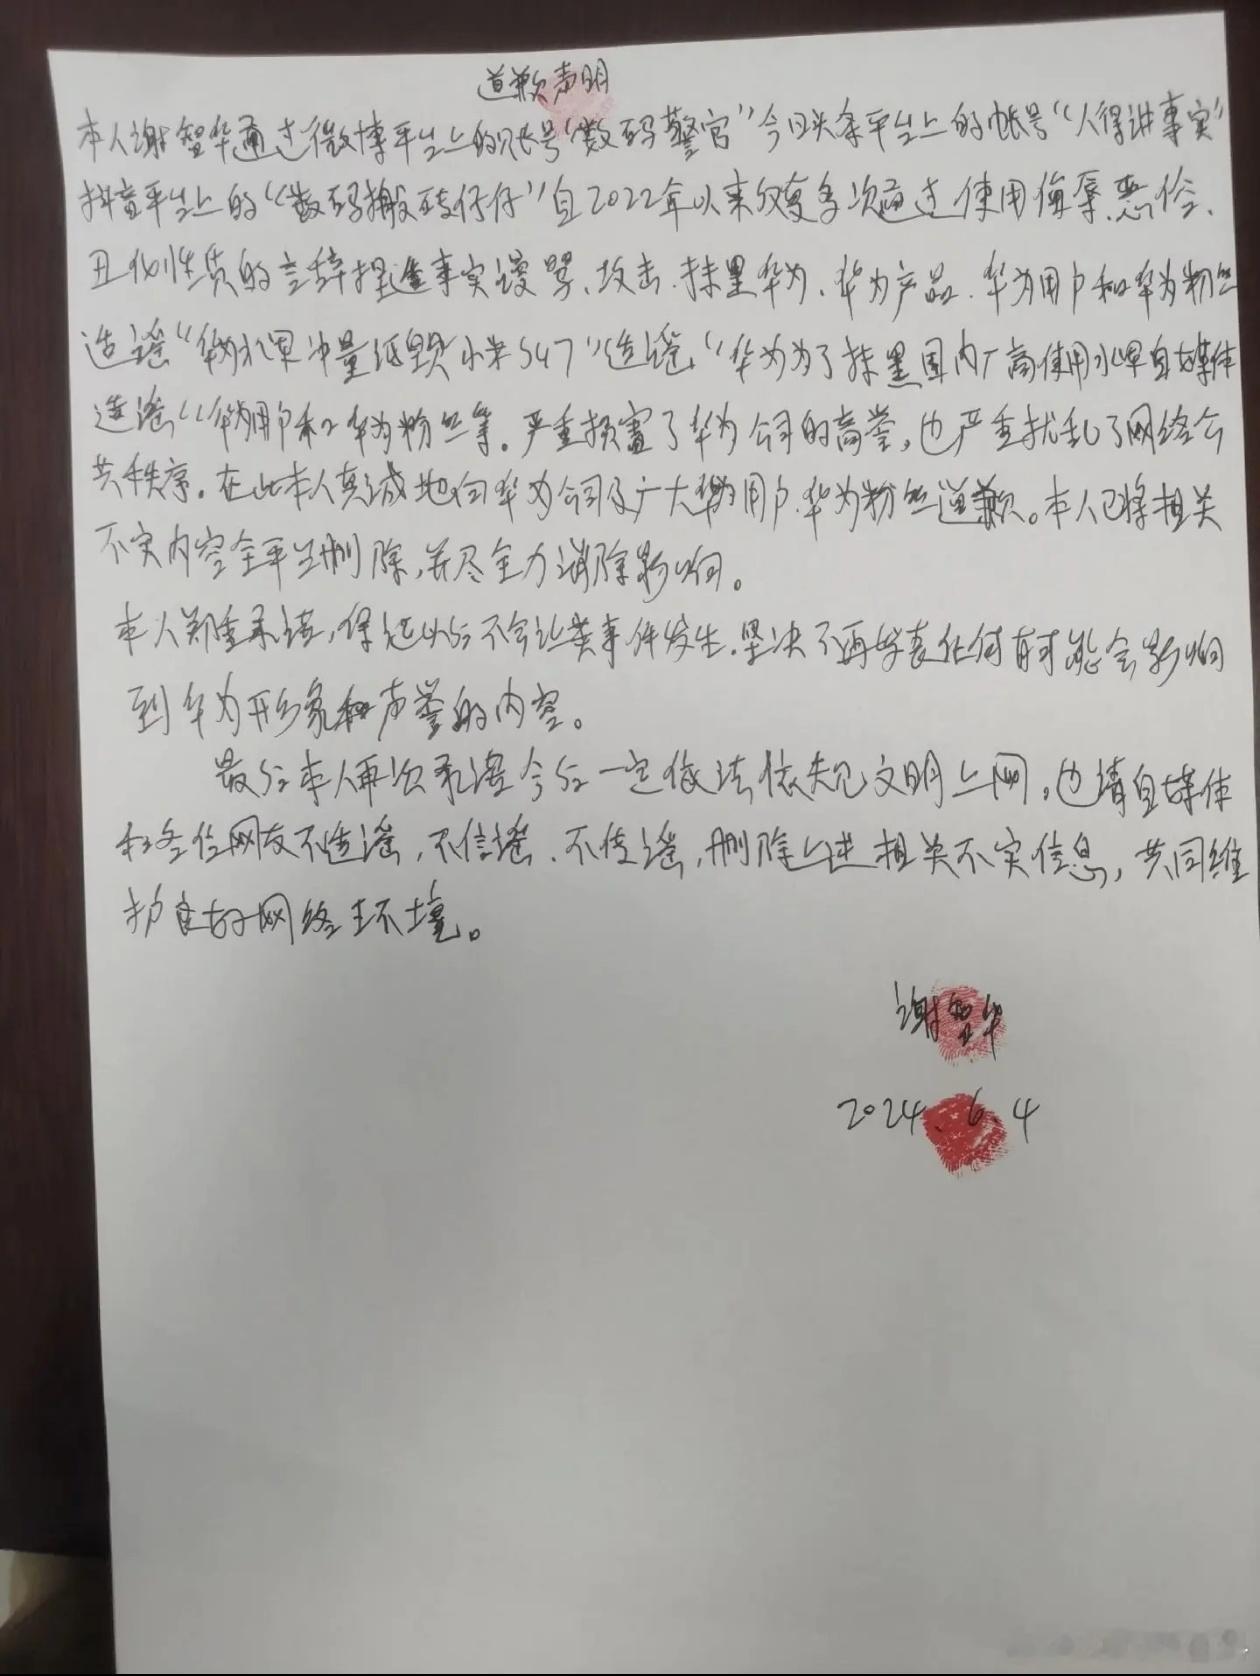 道歉声明
本人谢智华通过微博平台上的账号“数码警官”今日头条平台上的帐号“人得讲事实”
抖音平台上的“数码搬砖仔仔”自2022年以来反复多次通过使用侮辱、恶俗、
丑化性质的言辞捏造事实谩骂、攻击、抹黑华为、华为产品、华为用户和华为粉丝
造谣“华为水军冲量诋毁小米SU7”造谣“华为为了抹黑国内厂商使用水军自媒体
造谣“华为用户和华为粉丝等。严重损害了华为公司的商誉，也严重扰乱了网络公
共秩序。在此本人真诚地向华为公司及广大华为用户、华为粉丝道歉。本人已将相关
不实内容全平台删除，并尽全力消除影响。
本人郑重承诺，保证以后不会让类事件发生。坚决不再发表任何有可能会影响
到华为形象和声誉的内容。
最后本人再次承诺今后一定依法依规文明上网。也请自媒体
和各位网友不造谣，不信谣、不传谣，删除上述相关不实信息，共同维
护良好网络环境。
谢智华
2024.6.4